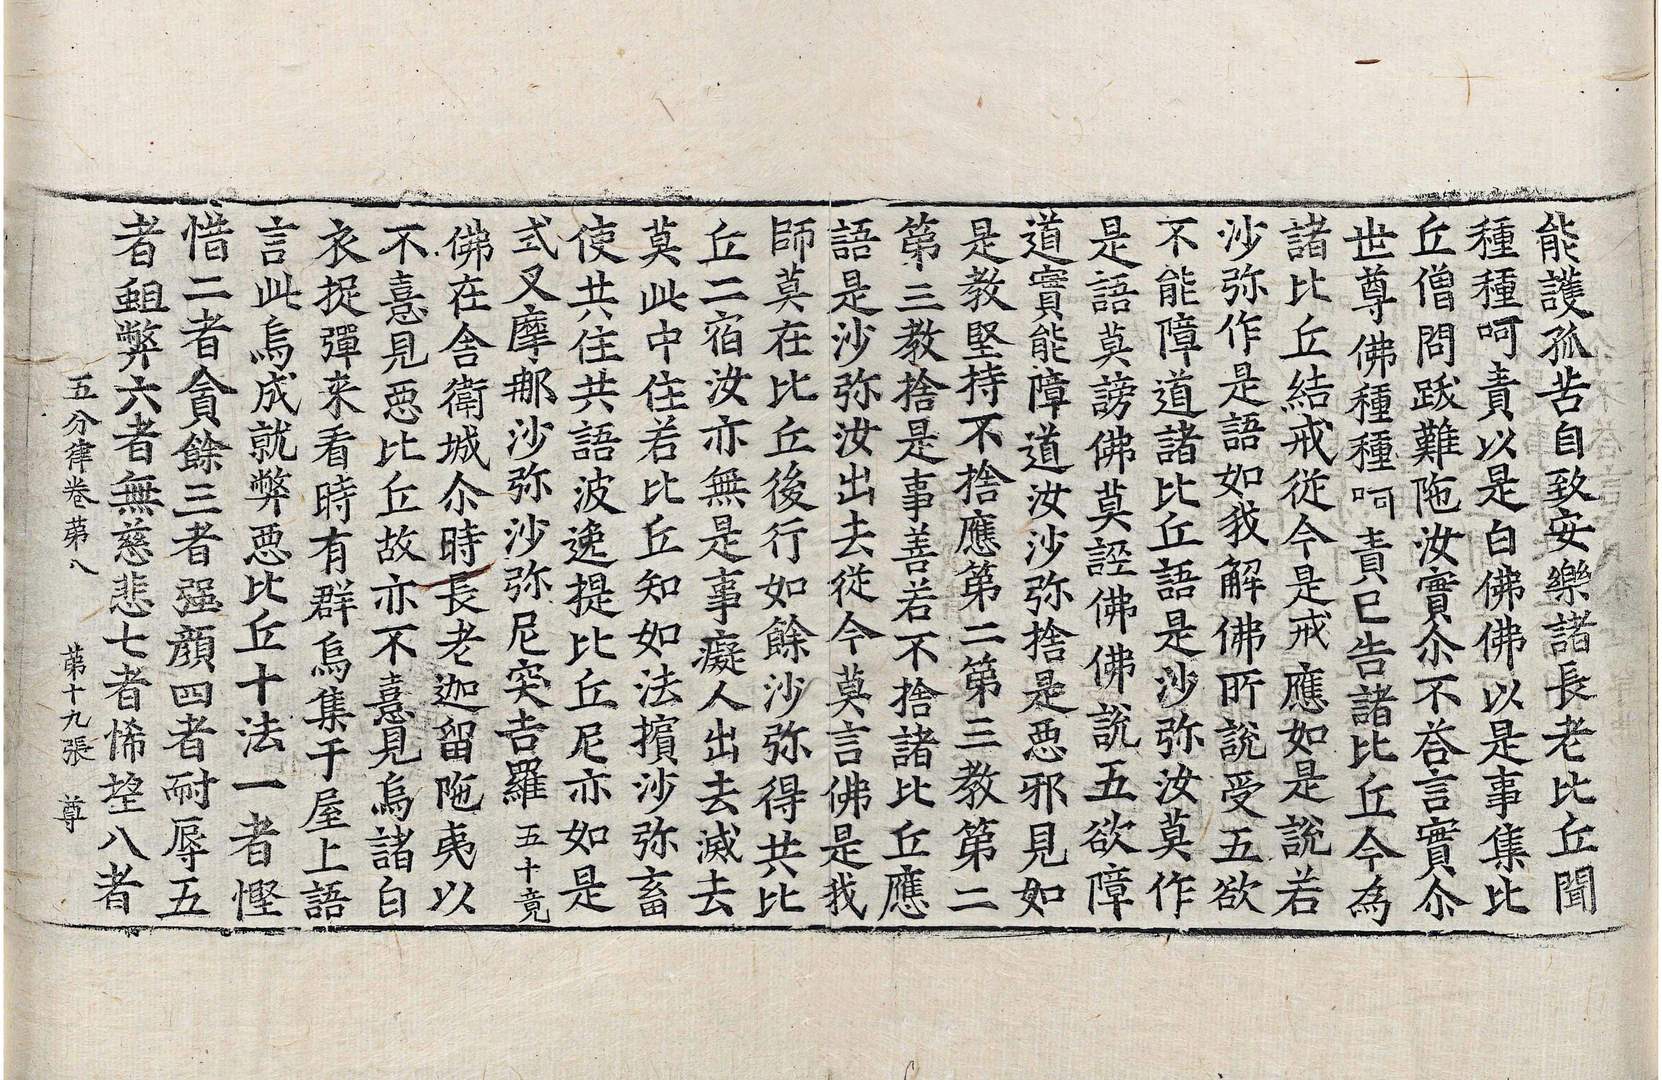 能護孤苦自致安樂諸長老比丘聞
種種呵責以是白佛佛以是事集比
丘僧問跋難陁汝實尒不荅言實尒
世尊佛種種呵責已告諸比丘今為
諸比丘結戒從今是戒應如是說若
沙弥作是語如我解佛所說受五欲
不能障道諸比丘語是沙弥汝莫作
是語莫謗佛莫誣佛佛說五欲障
道實能障道汝沙弥捨是惡邪見如
是教堅持不捨應第二第三教第二
第三教捨是事善若不捨諸比丘應
語是沙弥汝出去從今莫言佛是我
師莫在比丘後行如餘沙弥得共比
丘二宿汝亦無是事癡人出去滅去
莫此中住若比丘知如法擯沙弥畜
使共住共語波逸提比丘尼亦如是
式叉摩那沙弥沙弥尼突吉羅五十竟
佛在舎衛城尒時長老迦留陁夷以
不憙見惡比丘故亦不憙見烏諸白
衣捉彈来看時有群烏集于屋上語
言此烏成就弊惡比丘十法一者慳
惜二者貪餘三者强顔四者耐辱五
者蛆弊六者無慈悲七者悕望八者
五分律卷第八 第十九張 尊